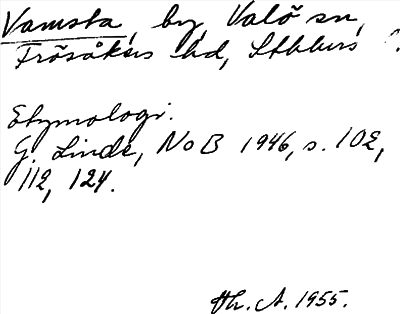 Vamsta, by, Valö sn,
Frösåkers hd, Sthlms
Etymologi.
G. Linde, NoB 1946, s. 102,
112, 124.
Th. A. 1955.